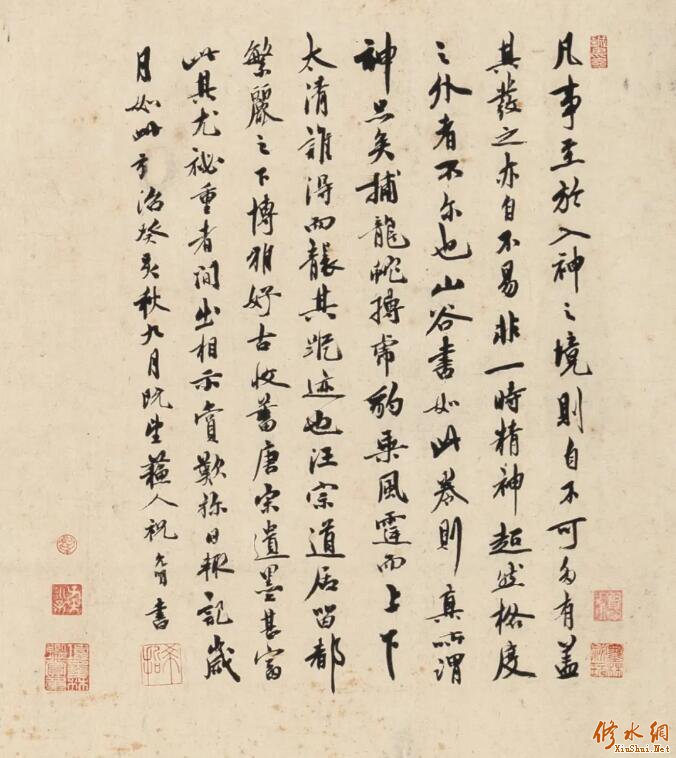 凡事至於入神之境則自不可多有蓋
其發之亦自不易非一時精神超然格度
之外者不尔也山谷書如此卷則真所謂
神品矣捕龍蛇搏虎豹乘風霆而上下
太清誰得而襲其蹤迹也汪宗道居留都
繁麗之下博雅好古收蓄唐宋遺墨甚富
此其尤祕重者间出相示賞歎弥日輒記歲
月如此弘治癸亥秋九月既望蘓人祝允明書
修水網
XiuShui.Net